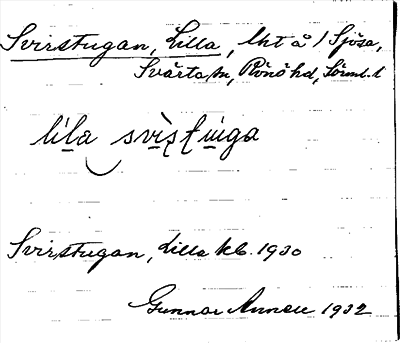 Svirstugan, Lilla, lht å / Sjösa,
Svärta sn, Rönö hd, Sörml. l
lila svisstuga
Svirstugan, Lilla kb. 1930
Gunnar Annell 1932